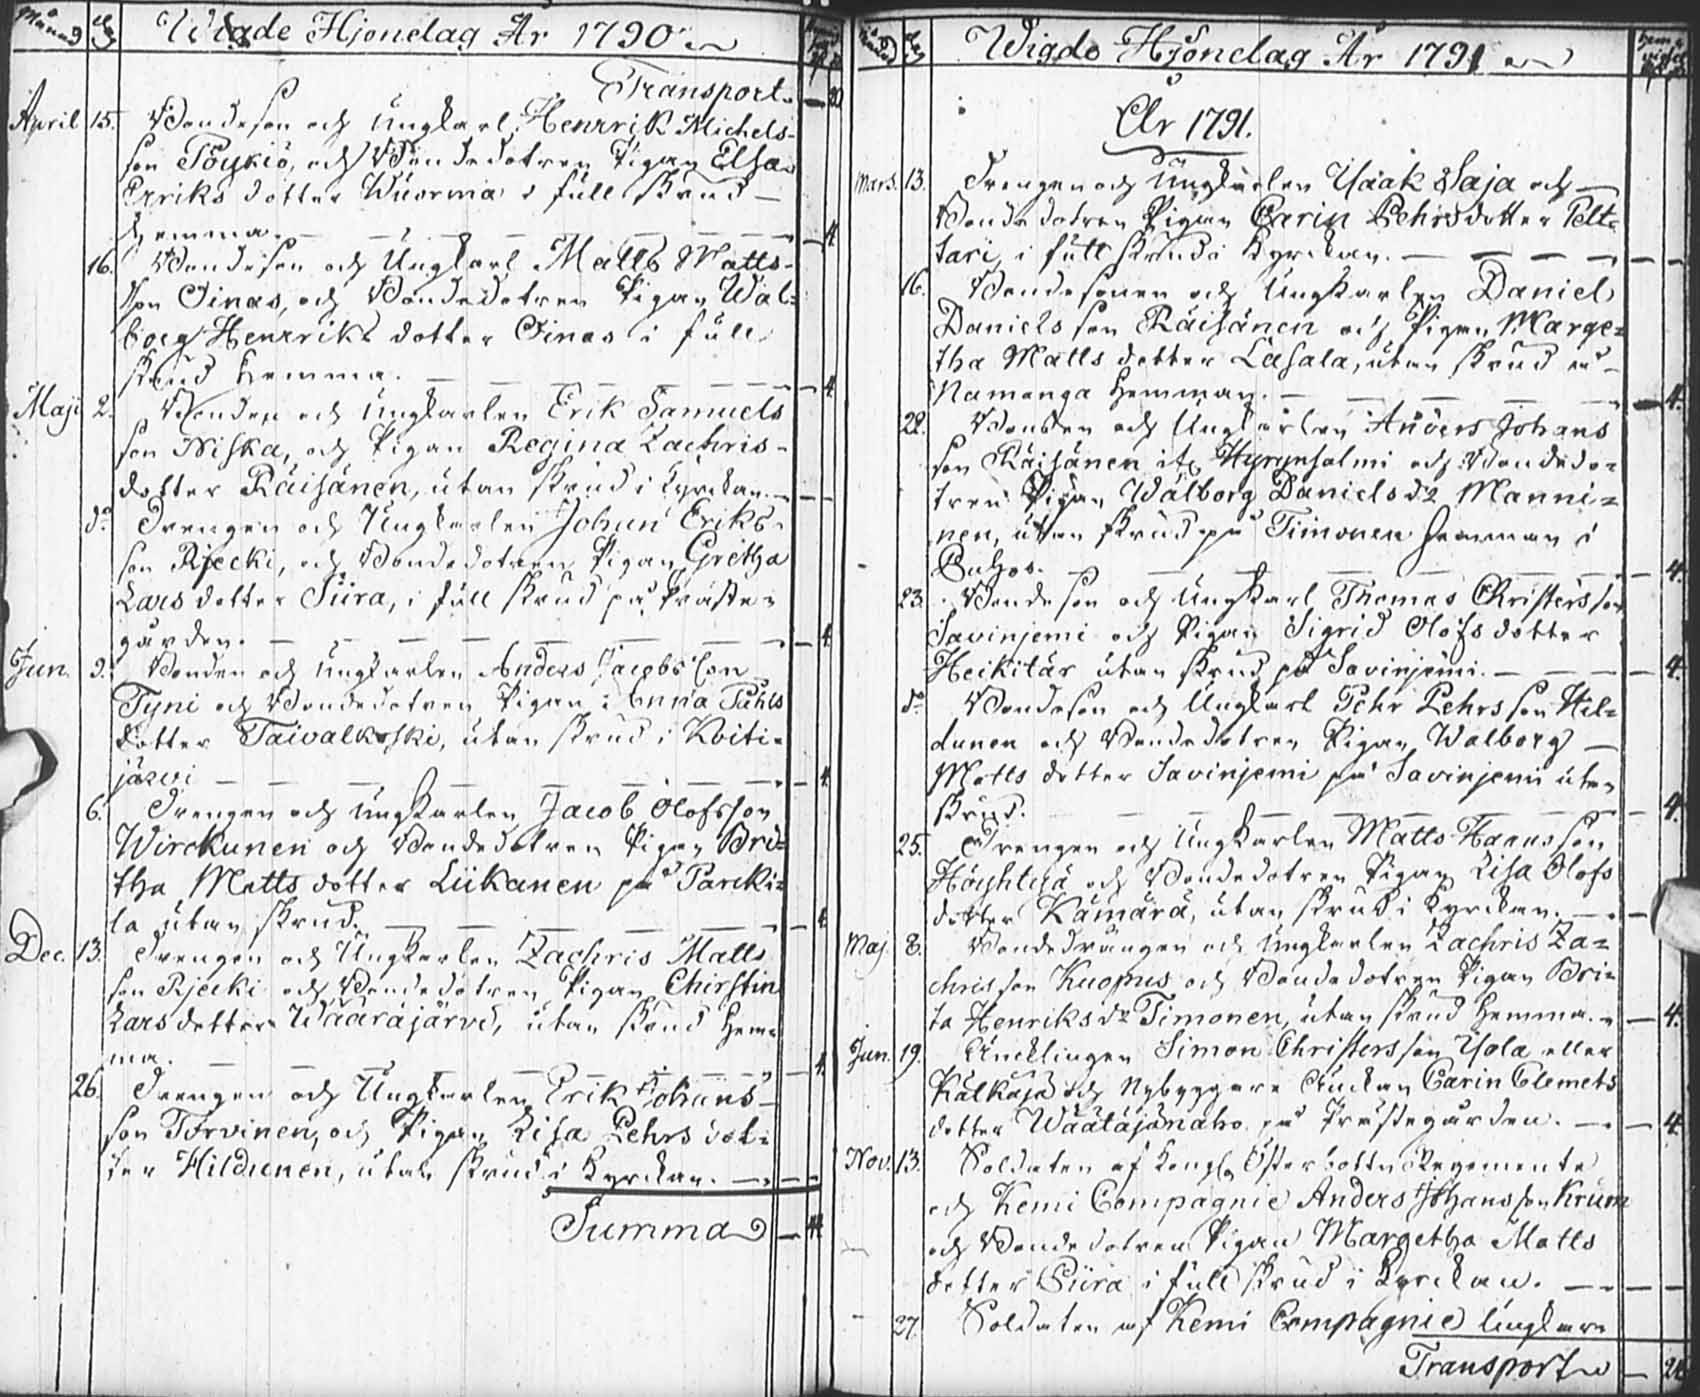 Månad
Dag
Wigde Hjonelag År 1790
Transport. — 20
April 15. Bondeson och Ungkarl Henrrik Michels-
son Pöykiö, och Bondedotren Pigan Elsa
Erriks dotter Wuorma i full skrud
hemma. — 4
16. Bondeson och Ungkarl Matts Matts-
son Oinas, och Bondedotren Pigan Wal-
borg Henrriks dotter Oinas i full
skrud hemma. — 4
Maji 2. Bonden och Ungkarlen Erik Samuels
son Niska, och Pigan Regina Zachris-
dotter Räisänen, utan skrud i Kyrckan. —
do Drengen och Ungkarlen Johan Eriks-
son Rjecki, och Bondedotren Pigan Gretha
Lars dotter Siira, i full skrud på Präste-
gården. — 4
Jun. 3. Bonden och Ungkarlen Anders Jacobsson
Tyni och Bondedotren Pigan Anna Puhls
dotter Taivalkoski, utan skrud i Koiti-
järvi — 4
6. Drengen och Ungkarlen Jacob Olofsson
Wirckunen och Bondedotren Pigan Bri-
tha Matts dotter Liikanen på Parcki-
la utan skrud. — 4
Dec. 13. Drengen och Ungkarlen Zachris Matts
son Rjecki och Bondedotren Pigan Chirstin
Lars dotter Wääräjärvi, utan skrud hem-
ma. — 4.
26. Drengen och Ungkarlen Erik Johans-
son Torvinen, och Pigan Lisa Pehrs dot-
ter Hildunen, utan skrud i Kyrckan. —
Summa — 44
Wigde Hjonelag År 1791
År 1791.
Mars. 13. Drengen och Ungkarlen Isaak Saja och
Bondedotren Pigan Carin Pehrsdotter Pelt-
tari, i full skrud i Kyrckan. —
16. Bondesonen och Ungkarlen Daniel
Daniels son Räisänen och Pigan Marge-
tha Matts dotter Lasala, utan skrud på
Namanga Hemman. — 4.
22. Bonden och Ungkarlen Anders Johans
son Räisänen ifr. Hyrynsalmi och Bondedo-
tren Pigan Walborg Daniels dr Manni-
nen, utan skrud på Timonen Hemman i
Puhos. — 4.
23. Bondeson och Ungkarl Thomas Christersson
Savinjemi och Pigan Sigrid Olofs dotter
Heikitär utan skrud på Savinjemi. — 4.
do Bondeson och Ungkarl Pehr Pehrs son Hil-
dunen och Bondedotren Pigan Walborg
Matts dotter Savinjemi på Savinjemi utan
skrud. — 4.
25. Drengen och Ungkarlen Matts Hansson
Höyhtyjä och Bondedotren Pigan Lisa Olofs
dotter Kämärä, utan skrud i Kyrckan. —
Maj. 8. Bondedrängen och Ungkarlen Zachris Za-
chris son Kuopus och Bondedotren Pigan Bri-
ta Henriks dr Timonen, utan skrud hemma. — 4.
Jun. 19. Äncklingen Simon Christersson Ysola eller
Kälkäjä och Nybyggare Änckan Carin Clemets
dotter Wäätäjänaho på Prästegården. — 4
Nov. 13. Soldaten af Kongl. Österbottn Regemente
och Kemi Compagnie Anders Johansson Krum
och Bondedotren Pigan Margetha Matts
dotter Siira i full skrud i Kyrckan. —
27. Soldaten af Kemi Compagnie Ungkarn
Transport — 24